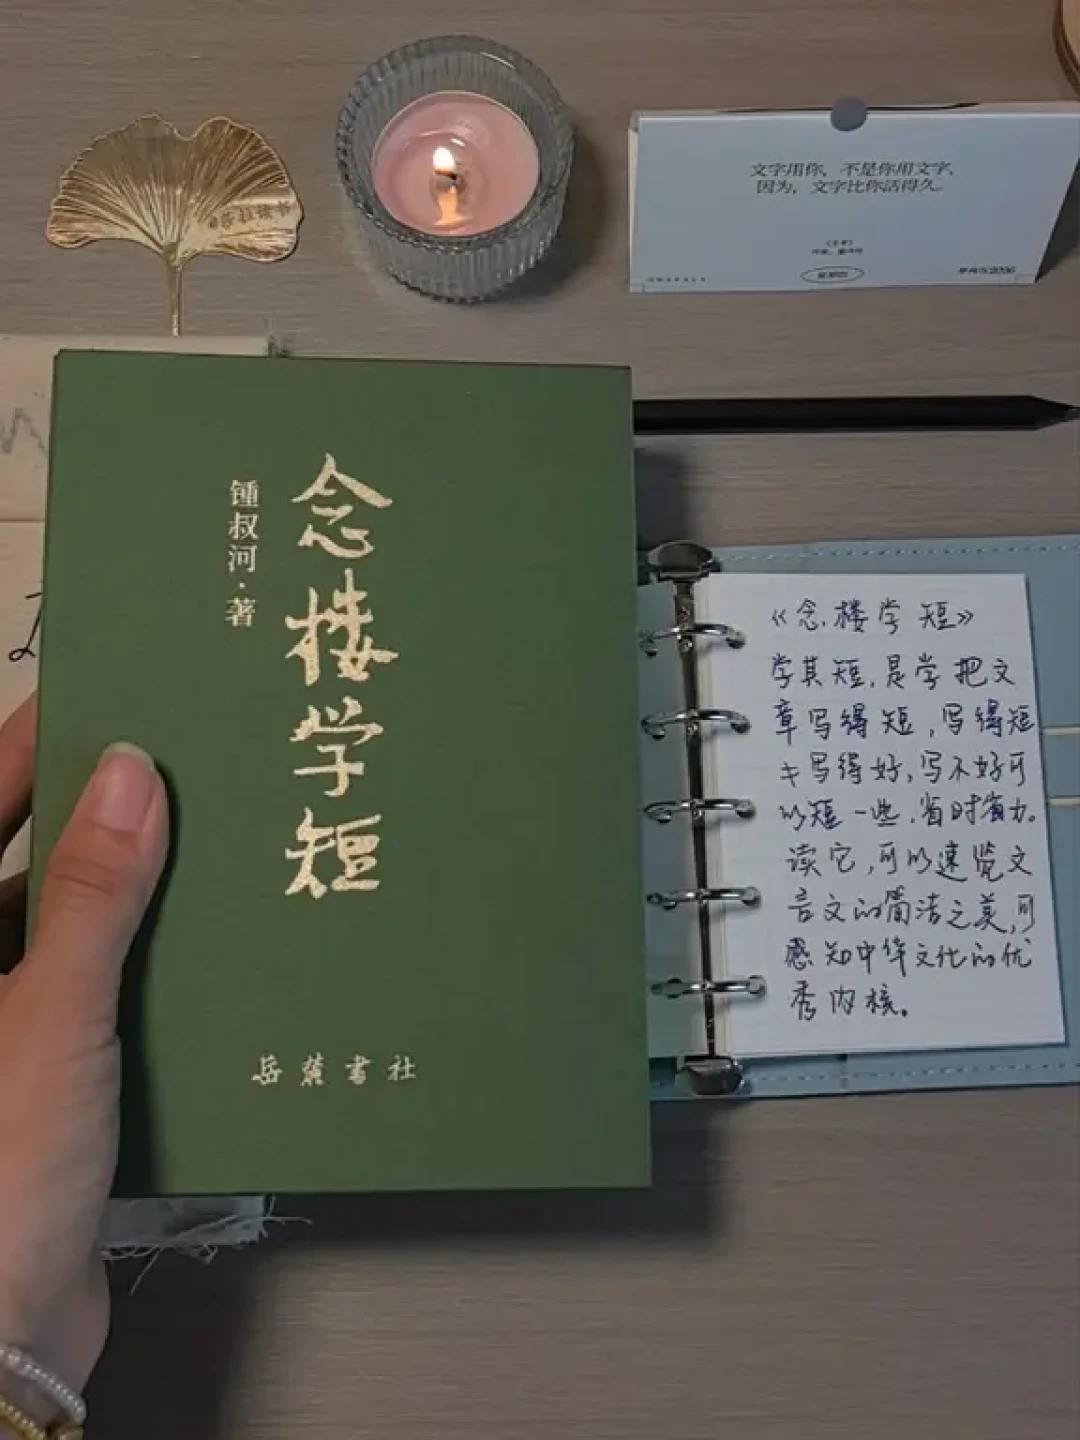 @莎拉读书
文字用你，不是你用文字，
因为，文字比你活得久。
念楼学短
锺叔河·著
岳麓書社
《念楼学短》
学其短，是学把文
章写得短，写得短
才写得好，写不好可
以短一些，省时省力。
读它，可以速览文
言文的简洁之美，可
感知中华文化的优
秀内核。